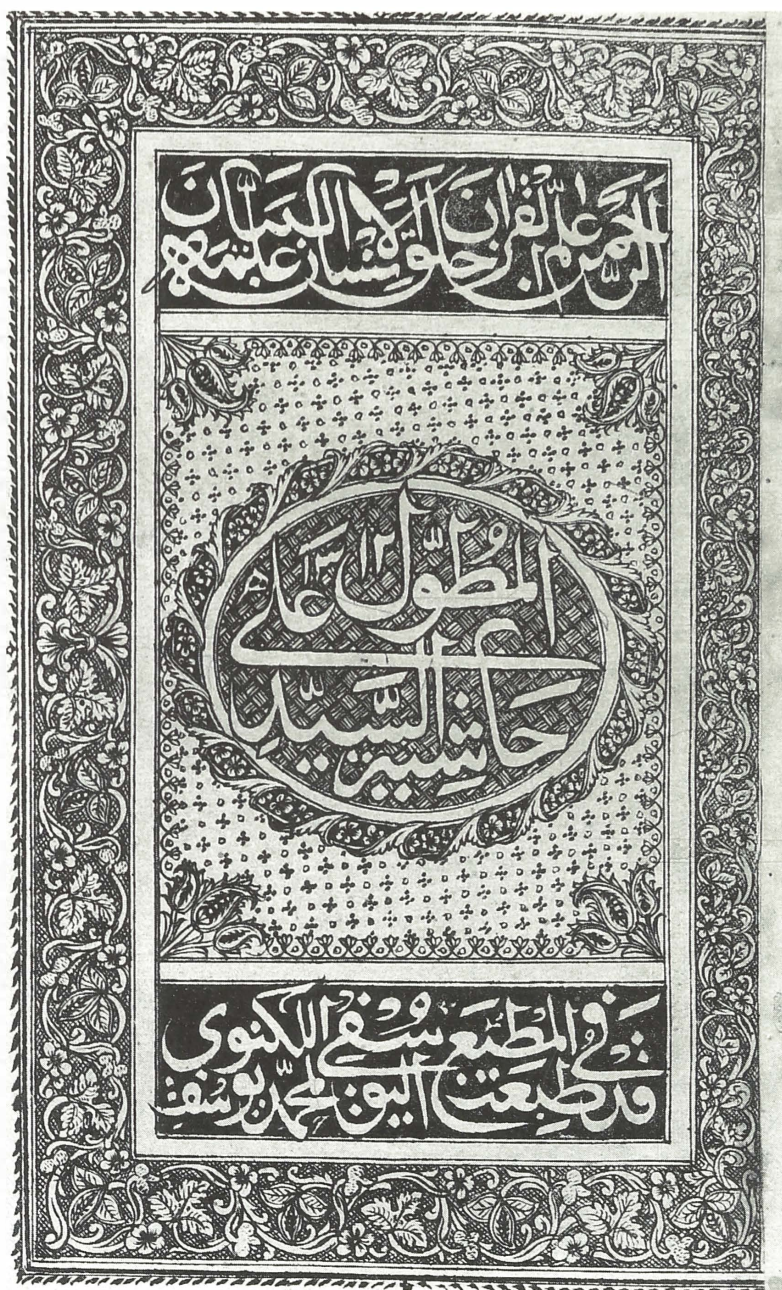 الرَّحمن علّم القرآن خلق الإنسان علّمه البيان
حاشية السّيّد
على المطوّل ١٣١٢
قد طبعت في المطبع اليوسفي لمحمّد يوسف اللكنوي